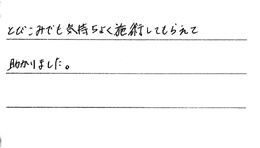 とびこみでも気持ちよく施術してもらえて
助かりました。